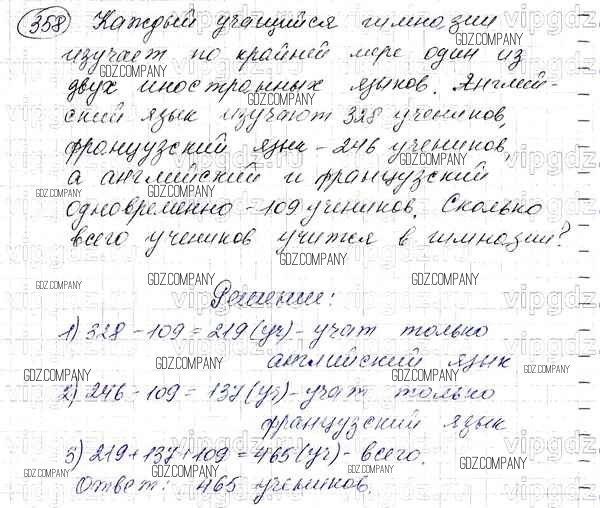 358 Каждый учащийся гимназии
изучает по крайней мере один из
двух иностранных языков. Англий-
ский язык изучают 328 учеников,
французский язык - 246 учеников,
а английский и французский
одновременно - 109 учеников. Сколько
всего учеников учится в гимназии?
Решение:
1) 328 - 109 = 219 (уч) - учат только
английский язык
2) 246 - 109 = 137 (уч) - учат только
французский язык
3) 219 + 137 + 109 = 465 (уч) - всего.
Ответ: 465 учеников.
GDZ.COMPANY
vipgdz